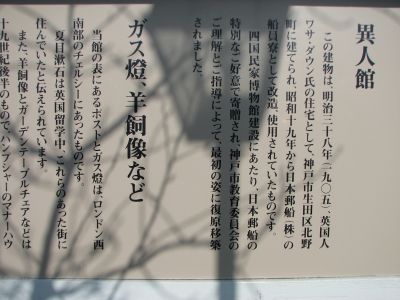 異人館
この建物は、明治三十八年(一九〇五)、英国人
ワサ・ダウン氏の住宅として、神戸市生田区北野
町に建てられ、昭和十九年から日本郵船(株)の
船員寮として改造、使用されていたものです。
四国民家博物館建設にあたり、日本郵船の
特別なご好意で寄贈され、神戸市教育委員会の
ご理解とご指導によって、最初の姿に復原移築
されました。
ガス燈、羊飼像など
当館の表にあるポストとガス燈は、ロンドン西
南部のチェルシーにあったものです。
夏目漱石は英国留学中、これらのあった街に
住んでいたと伝えられています。
また、羊飼像とガーデンテーブルチェアなどは
十九世紀後半のもので、ハンプシャーのマナーハウ